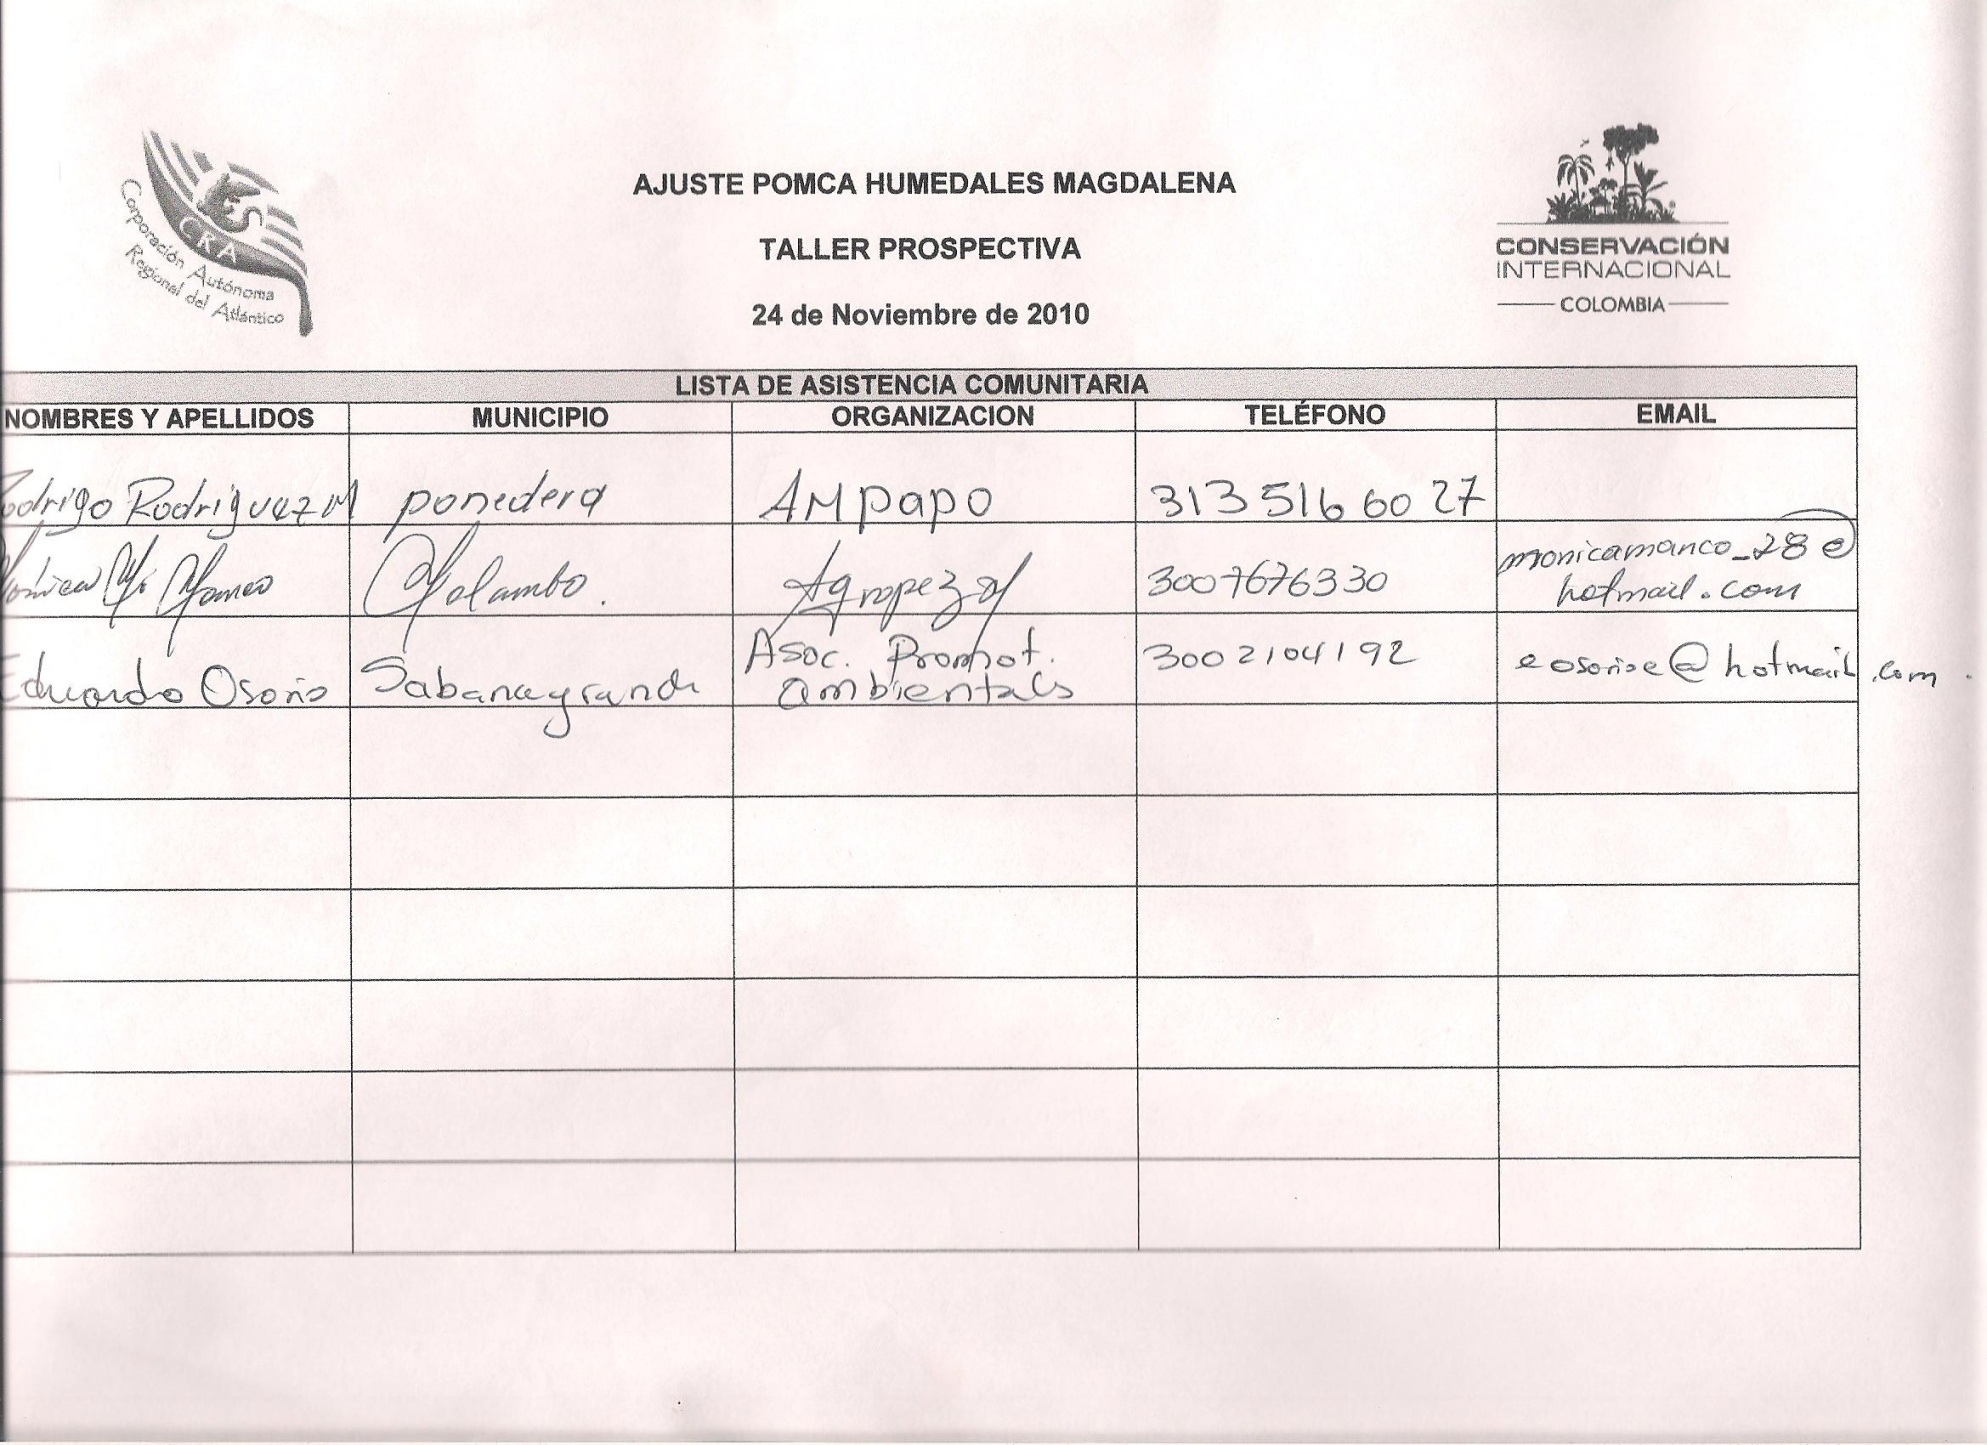 CRA
Corporación Autónoma
Regional del Atlántico
AJUSTE POMCA HUMEDALES MAGDALENA
TALLER PROSPECTIVA
24 de Noviembre de 2010
CONSERVACIÓN
INTERNACIONAL
COLOMBIA
LISTA DE ASISTENCIA COMUNITARIA
NOMBRES Y APELLIDOS MUNICIPIO ORGANIZACION TELÉFONO EMAIL
Rodrigo Rodriguez M ponedera AMpapo 313 516 60 27
Monica Ma Manco Malambo. Agropezal 3007676330 monicamanco_28@
hotmail.com
Eduardo Osorio Sabanagrande Asoc. Promot. 3002104192 eosorioe@hotmail.com
ambientals